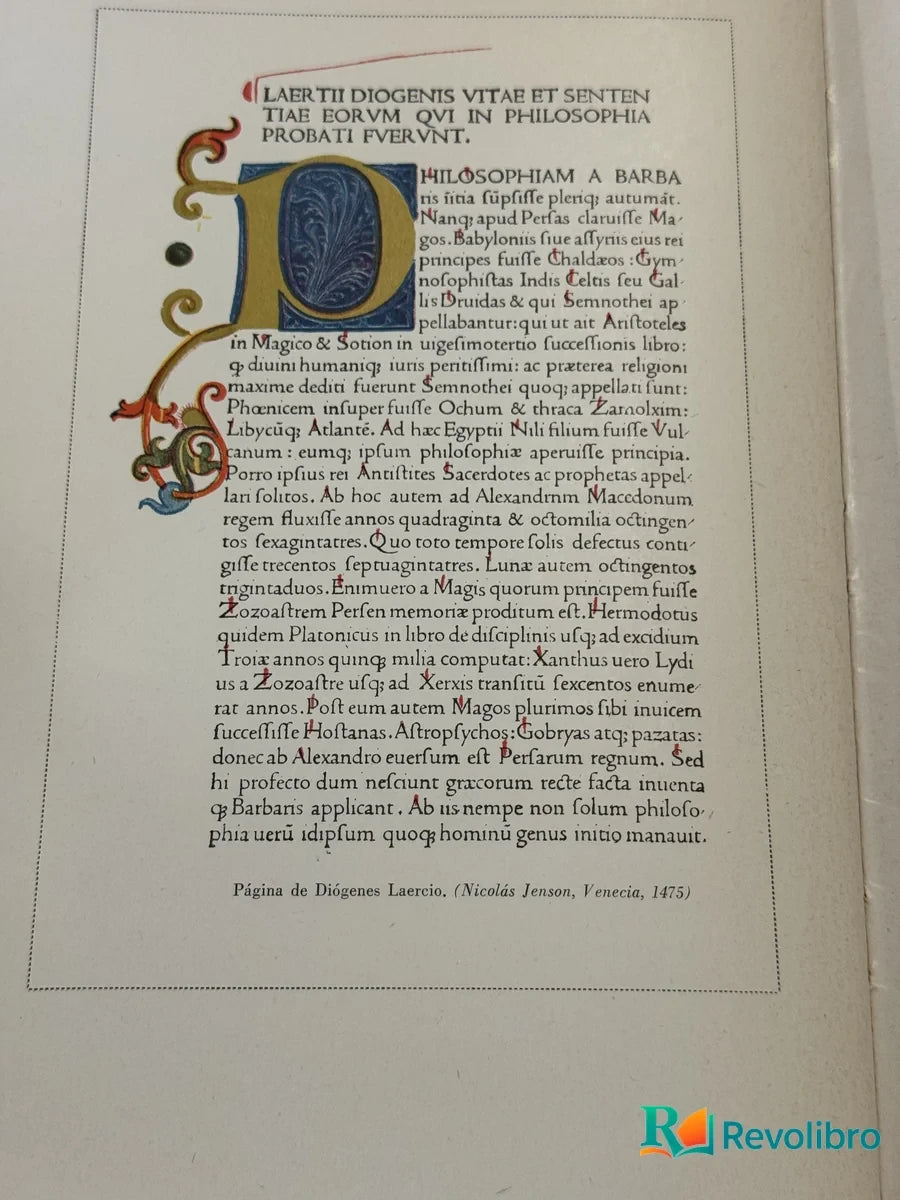 LAERTII DIOGENIS VITAE ET SENTEN
TIAE EORVM QVI IN PHILOSOPHIA
PROBATI FVERVNT.
PHILOSOPHIAM A BARBA
ris iītia sūpſiſſe pleriq; autumāt.
Nanq; apud Perſas claruiſſe Ma-
gos. Babyloniis ſiue aſſyriis eius rei
principes fuiſſe Chaldæos : Gym-
noſophiſtas Indis Celtis ſeu Gal-
lis Druidas & qui Semnothei ap
pellabantur: qui ut ait Ariſtoteles
in Magico & Sotion in uigeſimotertio ſucceſſionis libro:
ꝙ diuini humaniq; iuris peritiſſimi: ac præterea religioni
maxime dediti fuerunt Semnothei quoq; appellati ſunt:
Phœnicem inſuper fuiſſe Ochum & thraca Zamolxim:
Libycūq; Atlantē. Ad hæc Egyptii Nili filium fuiſſe Vul-
canum : eumq; ipſum philoſophiæ aperuiſſe principia.
Porro ipſius rei Antiſtites Sacerdotes ac prophetas appel-
lari ſolitos. Ab hoc autem ad Alexandrum Macedonum
regem fluxiſſe annos quadraginta & octomilia octingen-
tos ſexagintatres. Quo toto tempore ſolis defectus conti-
giſſe trecentos ſeptuagintatres. Lunæ autem octingentos
trigintaduos. Enimuero a Magis quorum principem fuiſſe
Zozoaſtrem Perſen memoriæ proditum eſt. Hermodotus
quidem Platonicus in libro de diſciplinis uſq; ad excidium
Troiæ annos quinq; milia computat: Xanthus uero Lydi
us a Zozoaſtre uſq; ad Xerxis tranſitū ſexcentos enume-
rat annos. Poſt eum autem Magos plurimos ſibi inuicem
ſucceſſiſſe Hoſtanas. Aſtropſychos: Gobryas atq; pazatas:
donec ab Alexandro euerſum eſt Perſarum regnum. Sed
hi profecto dum neſciunt græcorum recte facta inuenta
ꝙ Barbaris applicant. Ab iis nempe non ſolum philoſo-
phia uerū idipſum quoq; hominū genus initio manauit.
Página de Diógenes Laercio. (Nicolás Jenson, Venecia, 1475)
Revolibro